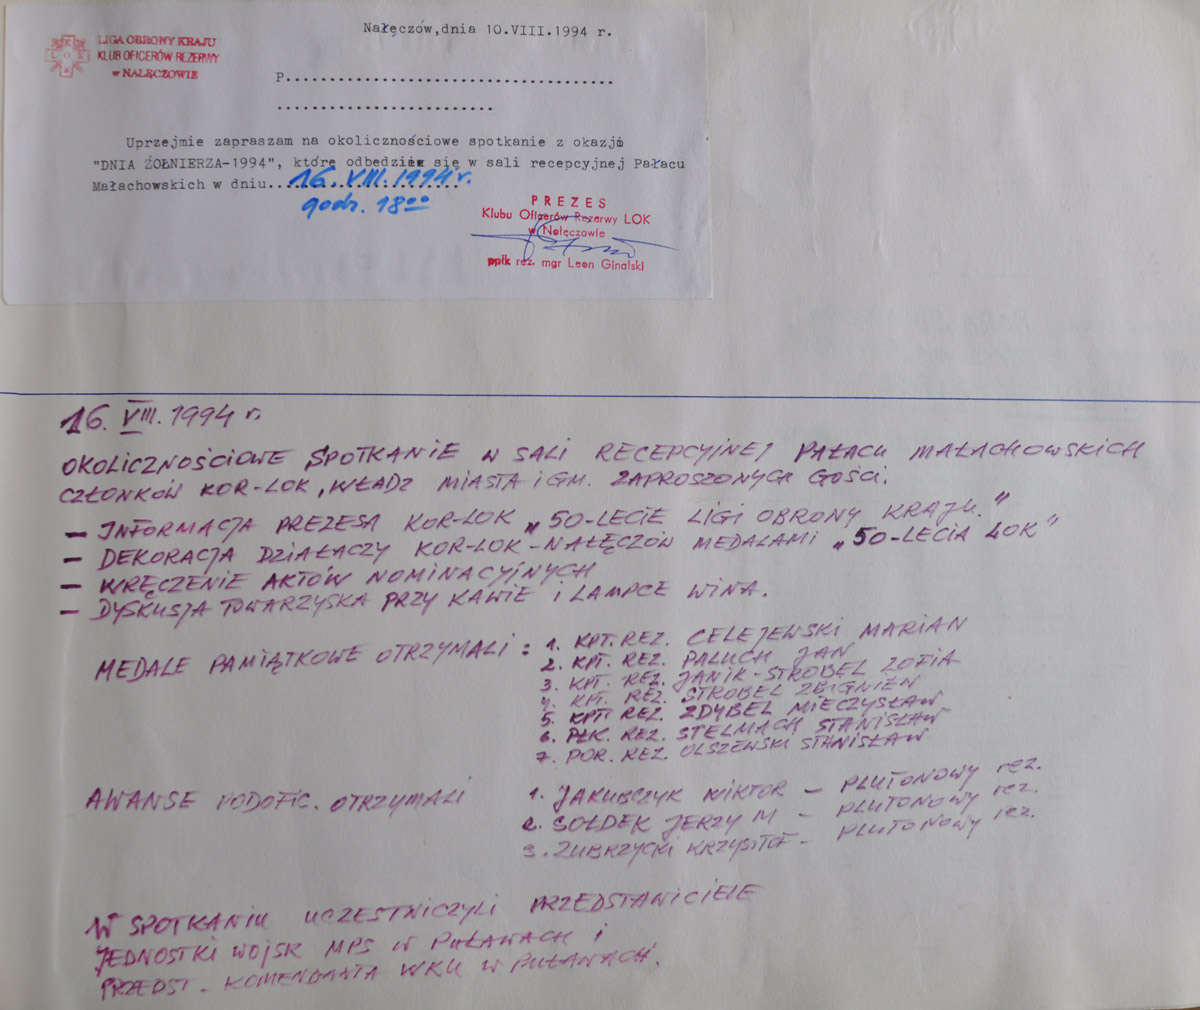 Nałęczów, dnia 10.VIII.1994 r.
LIGA OBRONY KRAJU
KLUB OFICERÓW REZERWY
w NAŁĘCZOWIE
P......................................
.........................
Uprzejmie zapraszam na okolicznościowe spotkanie z okazji
"DNIA ŻOŁNIERZA-1994", które odbedzie się w sali recepcyjnej Pałacu
Małachowskich w dniu...16.VIII.1994 r.
godz. 18⁰⁰
PREZES
Klubu Oficerów Rezerwy LOK
w Nałęczowie
ppłk rez. mgr Leon Ginalski
16. VIII. 1994 r.
OKOLICZNOŚCIOWE SPOTKANIE W SALI RECEPCYJNEJ PAŁACU MAŁACHOWSKICH
CZŁONKÓW KOR-LOK, WŁADZ MIASTA i GM. ZAPROSZONYCH GOŚCI.
— INFORMACJA PREZESA KOR-LOK „50-LECIE LIGI OBRONY KRAJU."
— DEKORACJA DZIAŁACZY KOR-LOK-NAŁĘCZÓW MEDALAMI „50-LECIA LOK"
— WRĘCZENIE AKTÓW NOMINACYJNYCH
— DYSKUSJA TOWARZYSKA PRZY KAWIE i LAMPCE WINA.
MEDALE PAMIĄTKOWE OTRZYMALI : 1. KPT. REZ. CELEJEWSKI MARIAN
2. KPT. REZ. PALUCH JAN
3. KPT. REZ. JANIK-STROBEL ZOFIA
4. KPT. REZ. STROBEL ZBIGNIEW
5. KPT. REZ. ZDYBEL MIECZYSŁAW
6. PŁK. REZ. STELMACH STANISŁAW
7. POR. REZ. OLSZEWSKI STANISŁAW
AWANSE PODOFIC. OTRZYMALI 1. JAKUBCZYK WIKTOR — PLUTONOWY rez.
2. SOŁDEK JERZY M — PLUTONOWY rez.
3. ZUBRZYCKI KRZYSZTOF — PLUTONOWY rez.
W SPOTKANIU UCZESTNICZYLI PRZEDSTAWICIELE
JEDNOSTKI WOJSK MPS W PUŁAWACH i
PRZEDST. KOMENDANTA WKU W PUŁAWACH.